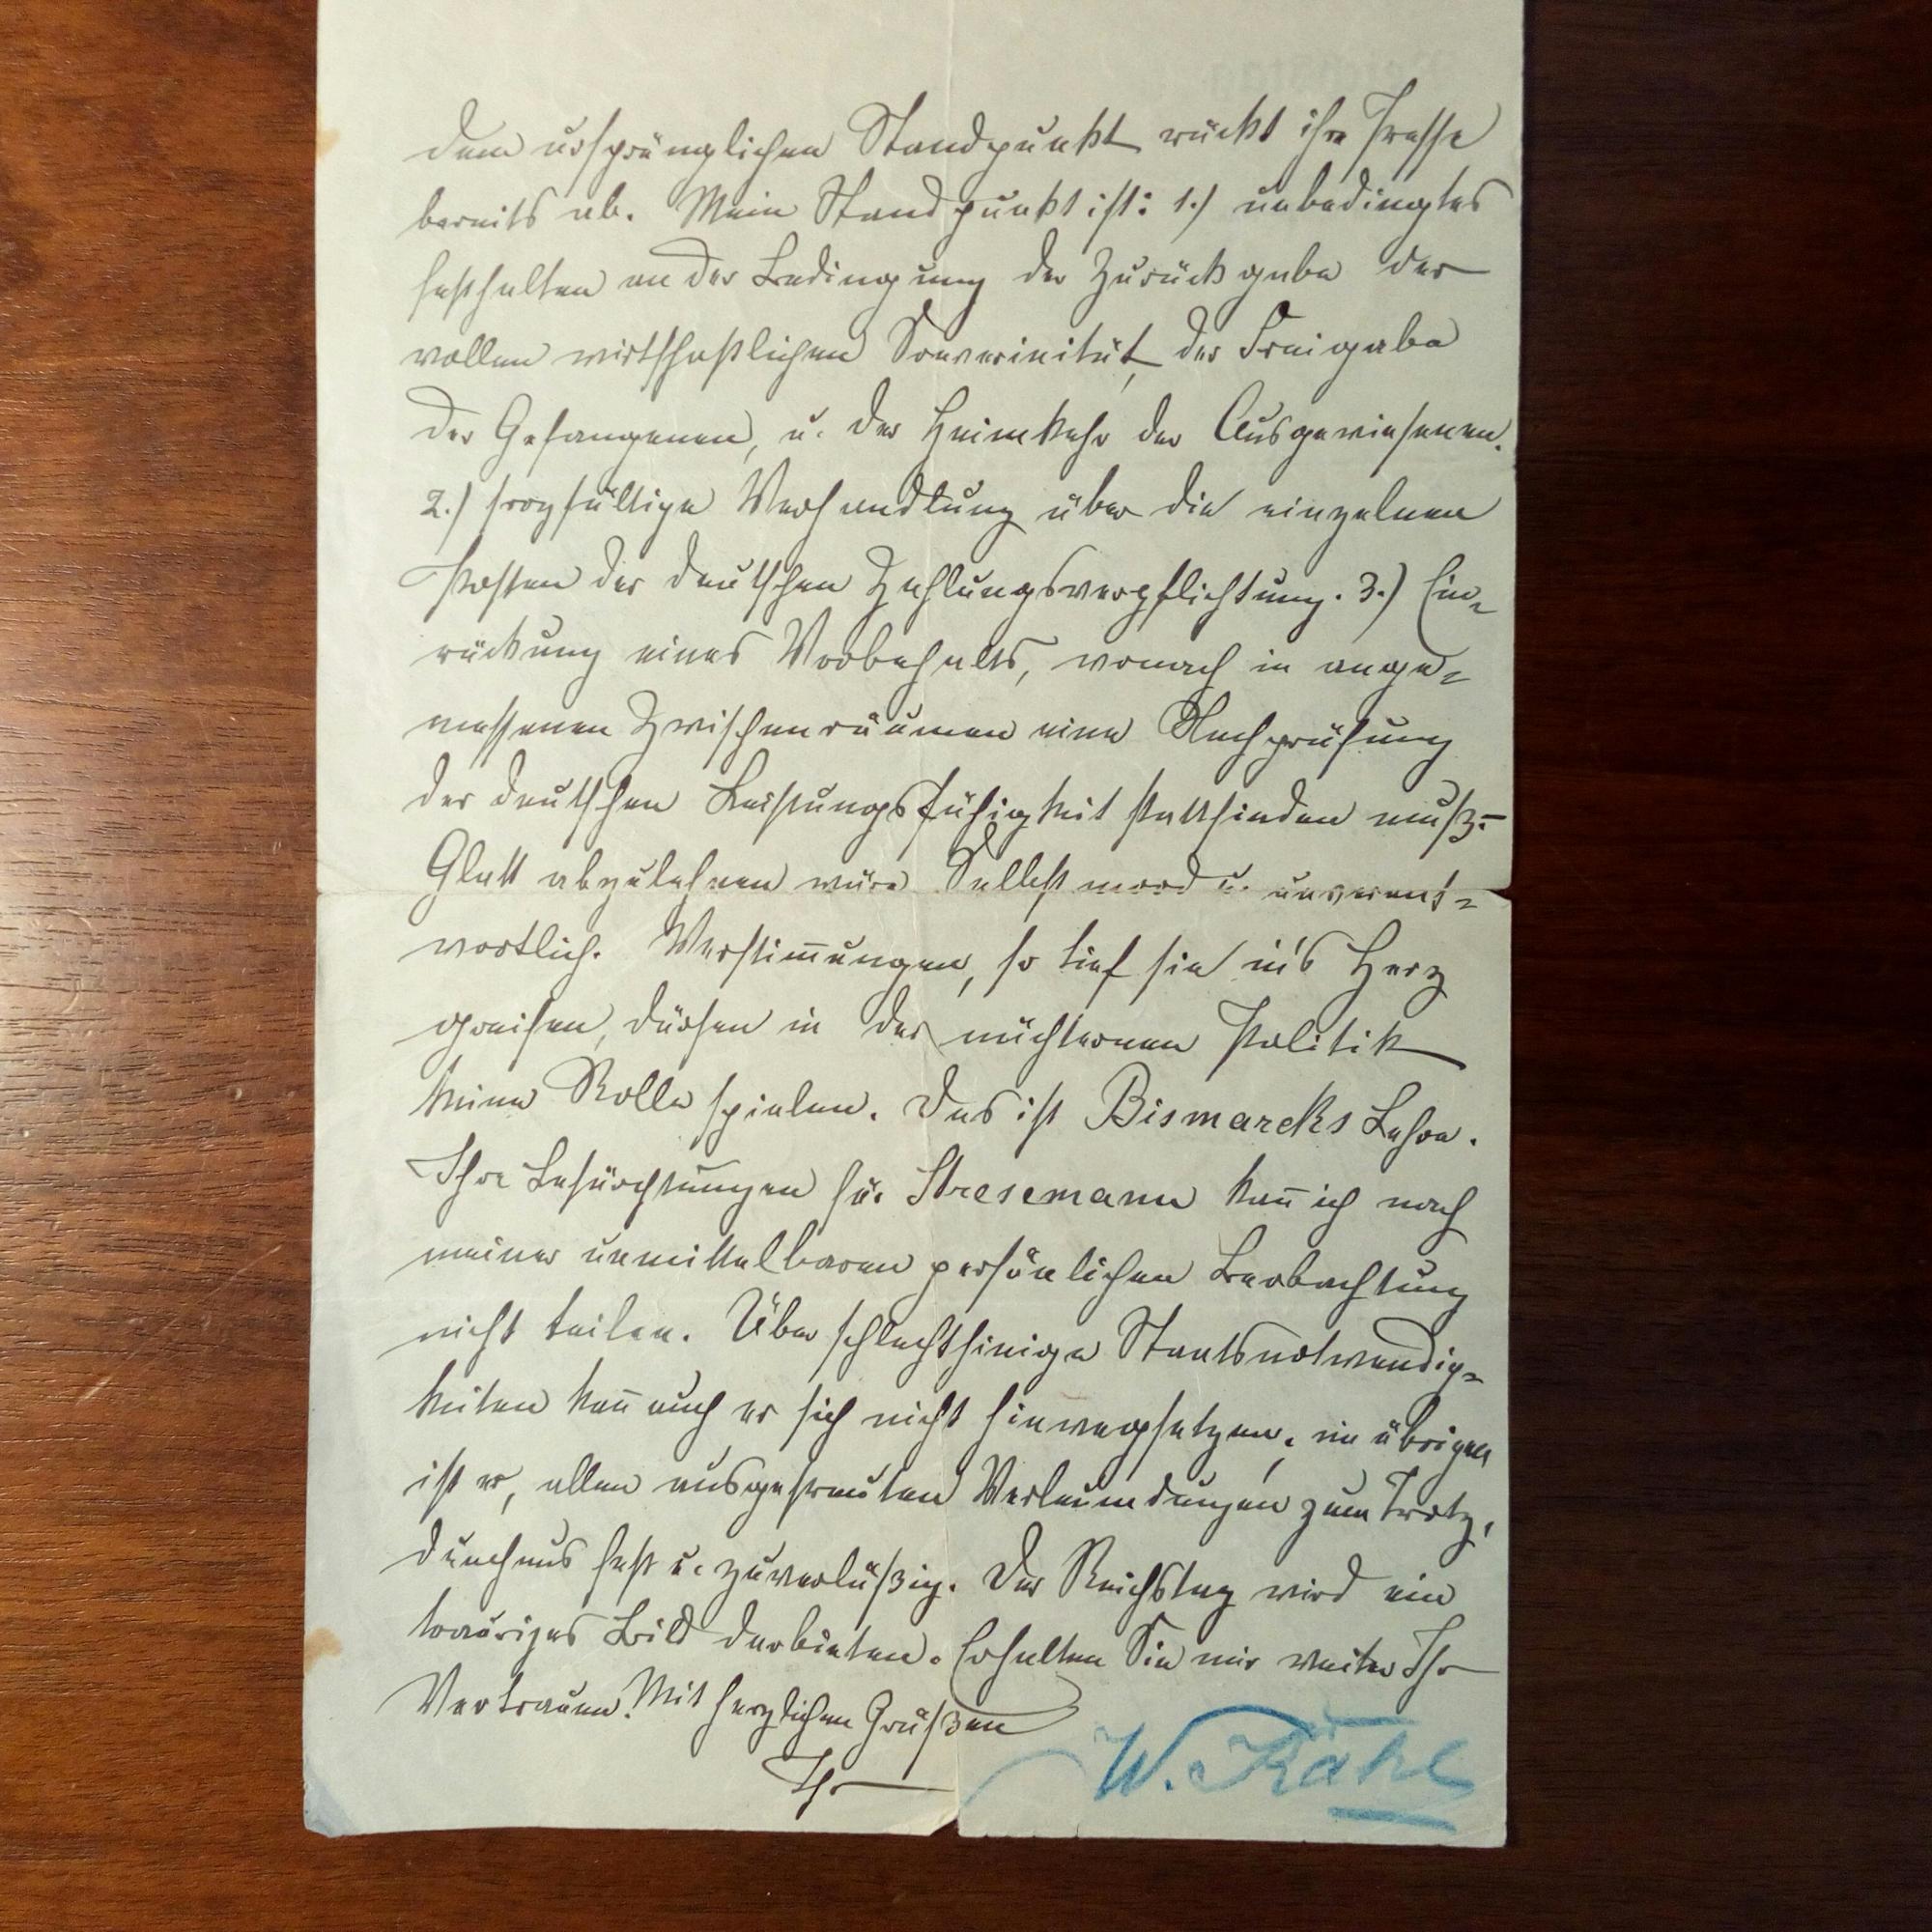 dem ursprünglichen Standpunkt rückt ihre Presse
bereits ab. Mein Standpunkt ist: 1.) unbedingtes
festhalten an der Bedingung der Zurückgabe der
vollen wirtschaftlichen Souverinität, der Freigabe
der Gefangenen, u. der Heimkehr der Ausgewiesenen.
2.) sorgfältige Verhandlung über die einzelnen
Posten der deutschen Zahlungsverpflichtung. 3.) Ein-
rückung eines Vorbehalts, wonach in ange-
messenen Zwischenräumen eine Nachprüfung
der deutschen Leistungsfähigkeit stattfinden muß.-
Glatt abzulehnen wäre Selbstmord u. unverant-
wortlich. Verstim̅ungen, so tief sie in's Herz
greifen, dürfen in der nüchternen Politik
keine Rolle spielen. Das ist Bismarcks Lehre.
Ihre Befürchtungen für Stresemann kan̅ ich nach
meiner unmittelbaren persönlichen Beobachtung
nicht teilen. Über schlechthinige Staatsnotwendig-
keiten kan̅ auch er sich nicht hinwegsetzen; im übrigen
ist er, allen ausgestreuten Verleumdungen zum Trotz,
durchaus fest u. zuverläßig. Der Reichstag wird ein
trauriges Bild darbieten. Erhalten Sie mir weiter Ihr
Vertrauen! Mit herzlichen Grüßen
Ihr
W. Kahl